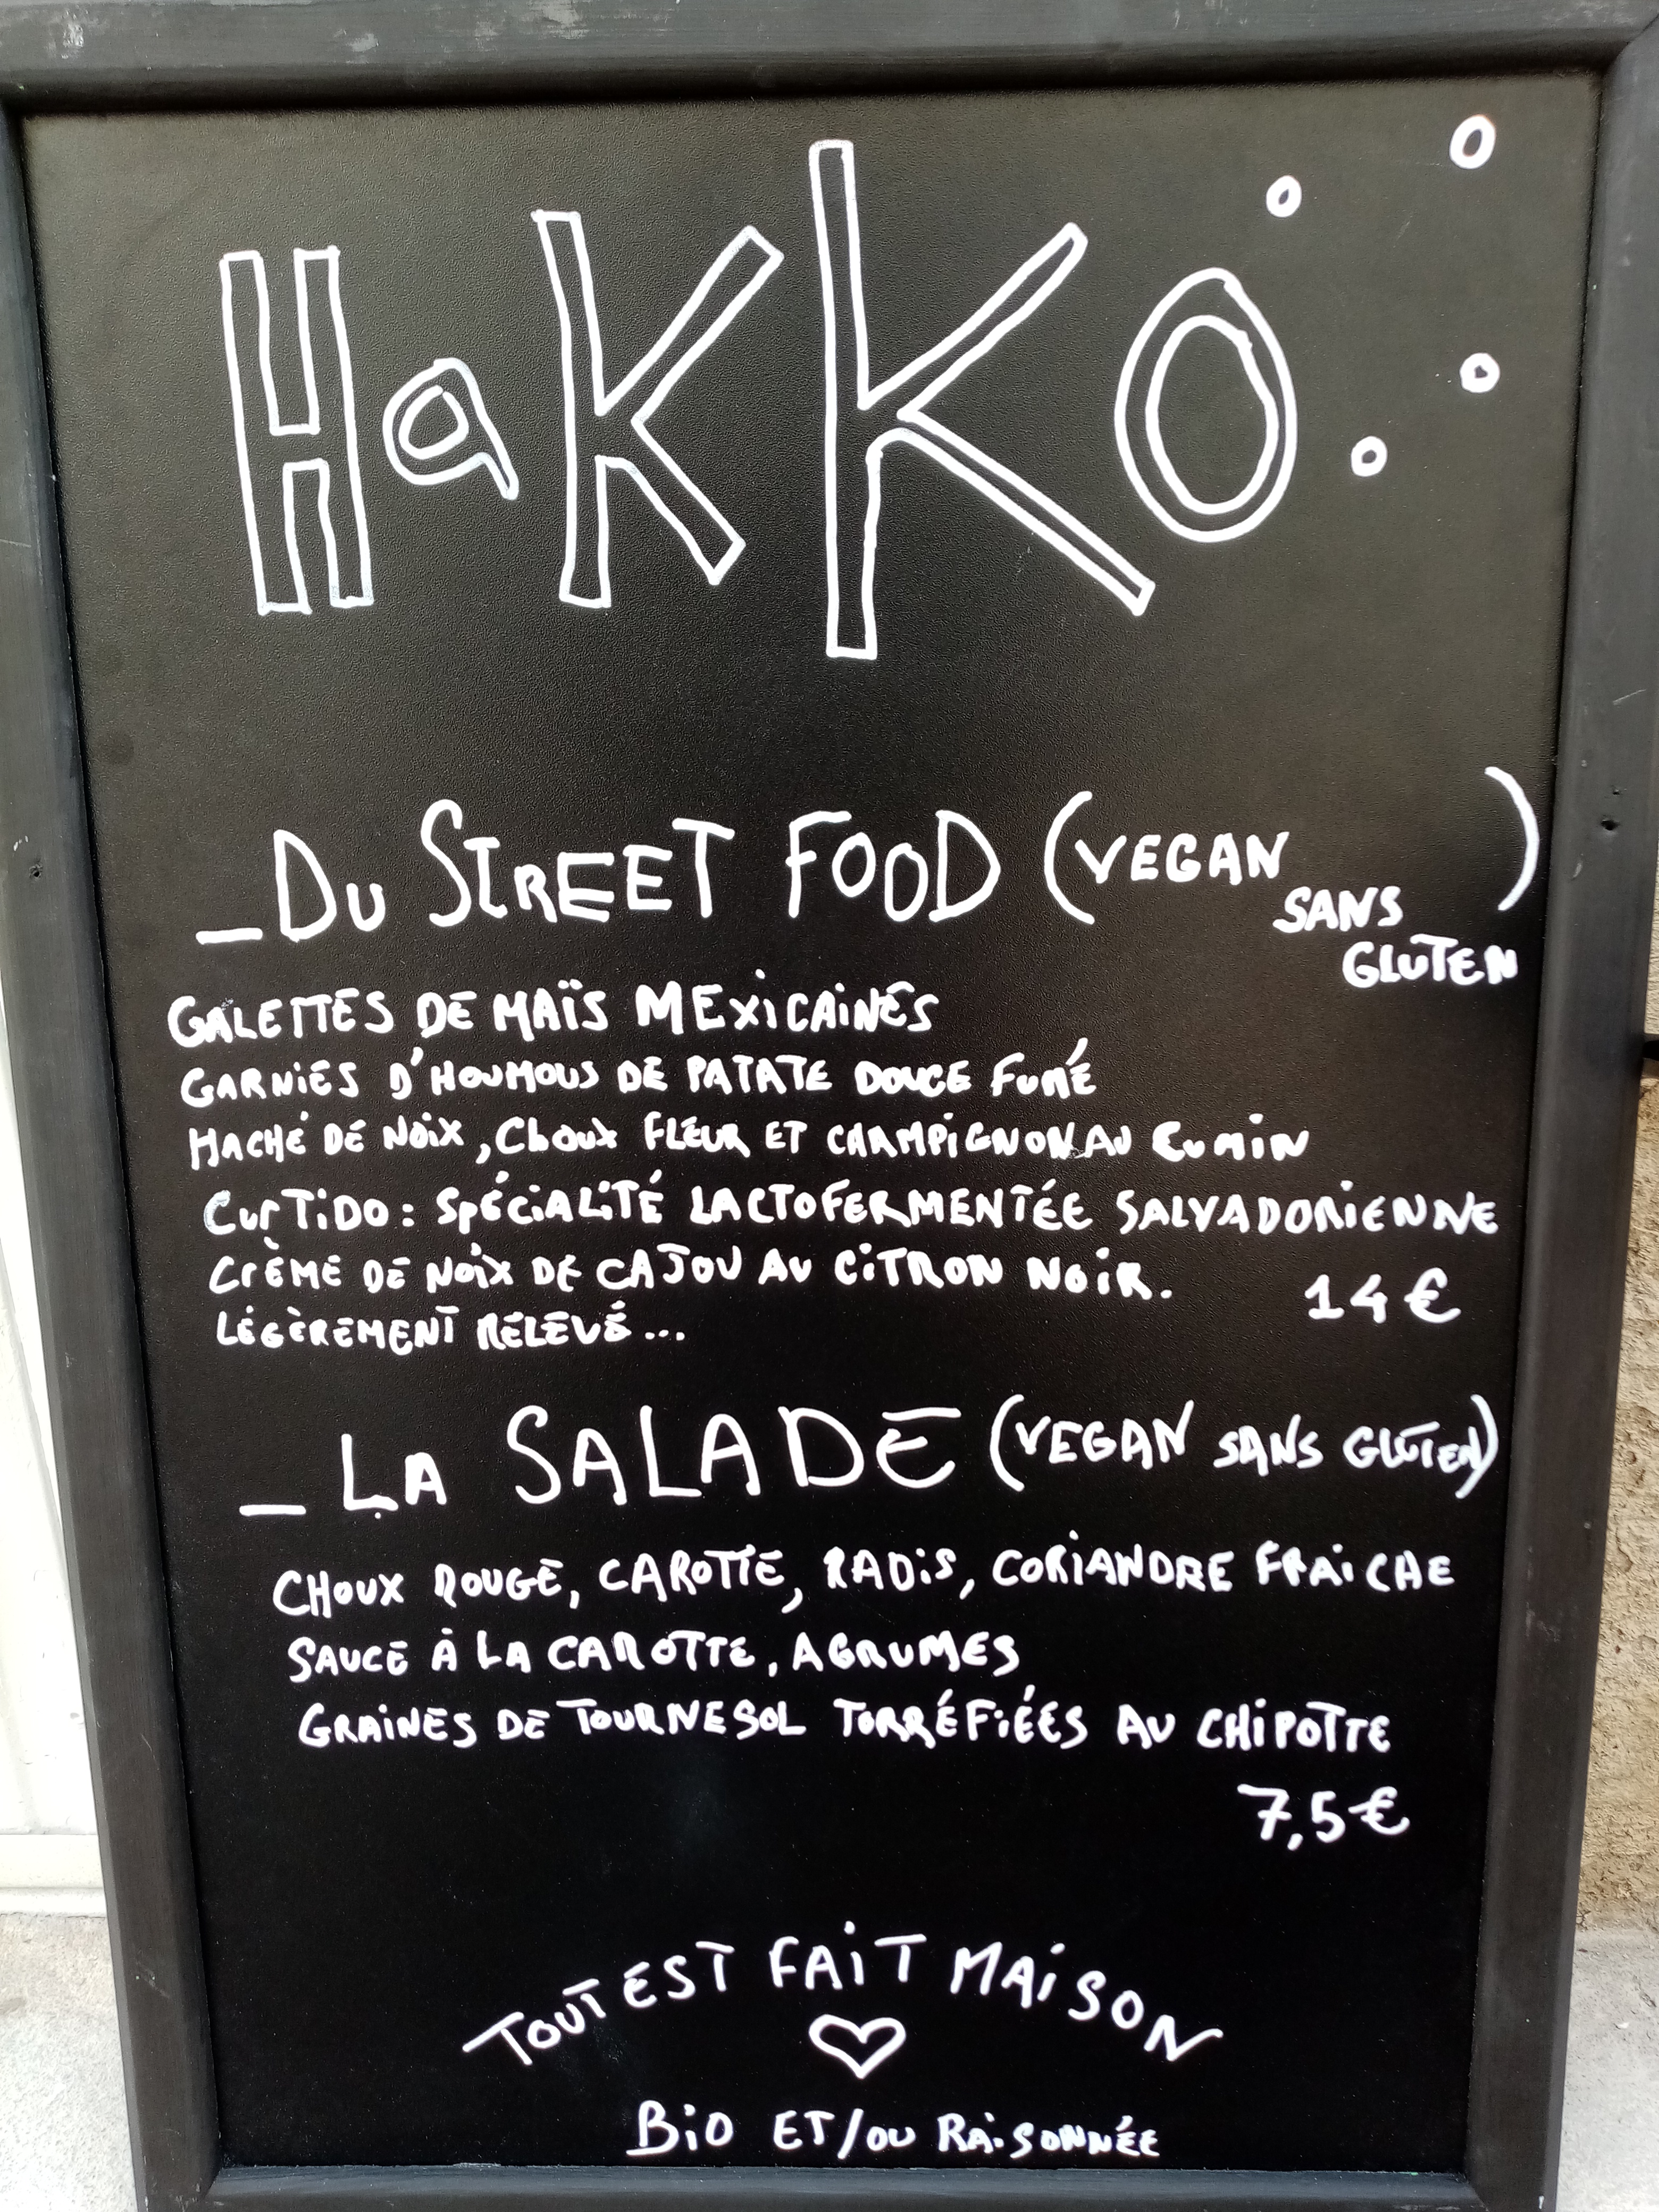 HaKKO
_DU STREET FOOD (VEGAN SANS GLUTEN)
GALETTES DE MAÏS MEXICAINES
GARNIES D'HOUMOUS DE PATATE DOUCE FUMÉ
HACHÉ DE NOIX, CHOUX FLEUR ET CHAMPIGNON AU CUMIN
CURTIDO : SPÉCIALITÉ LACTOFERMENTÉE SALVADORIENNE
CRÈME DE NOIX DE CAJOU AU CITRON NOIR.
14€
LÉGÈREMENT RELEVÉ...
_ LA SALADE (VEGAN SANS GLUTEN)
CHOUX ROUGE, CAROTTE, RADIS, CORIANDRE FRAICHE
SAUCE À LA CAROTTE, AGRUMES
GRAINES DE TOURNESOL TORRÉFIÉES AU CHIPOTTE
7,5€
TOUT EST FAIT MAISON
BIO ET/OU RAISONNÉE